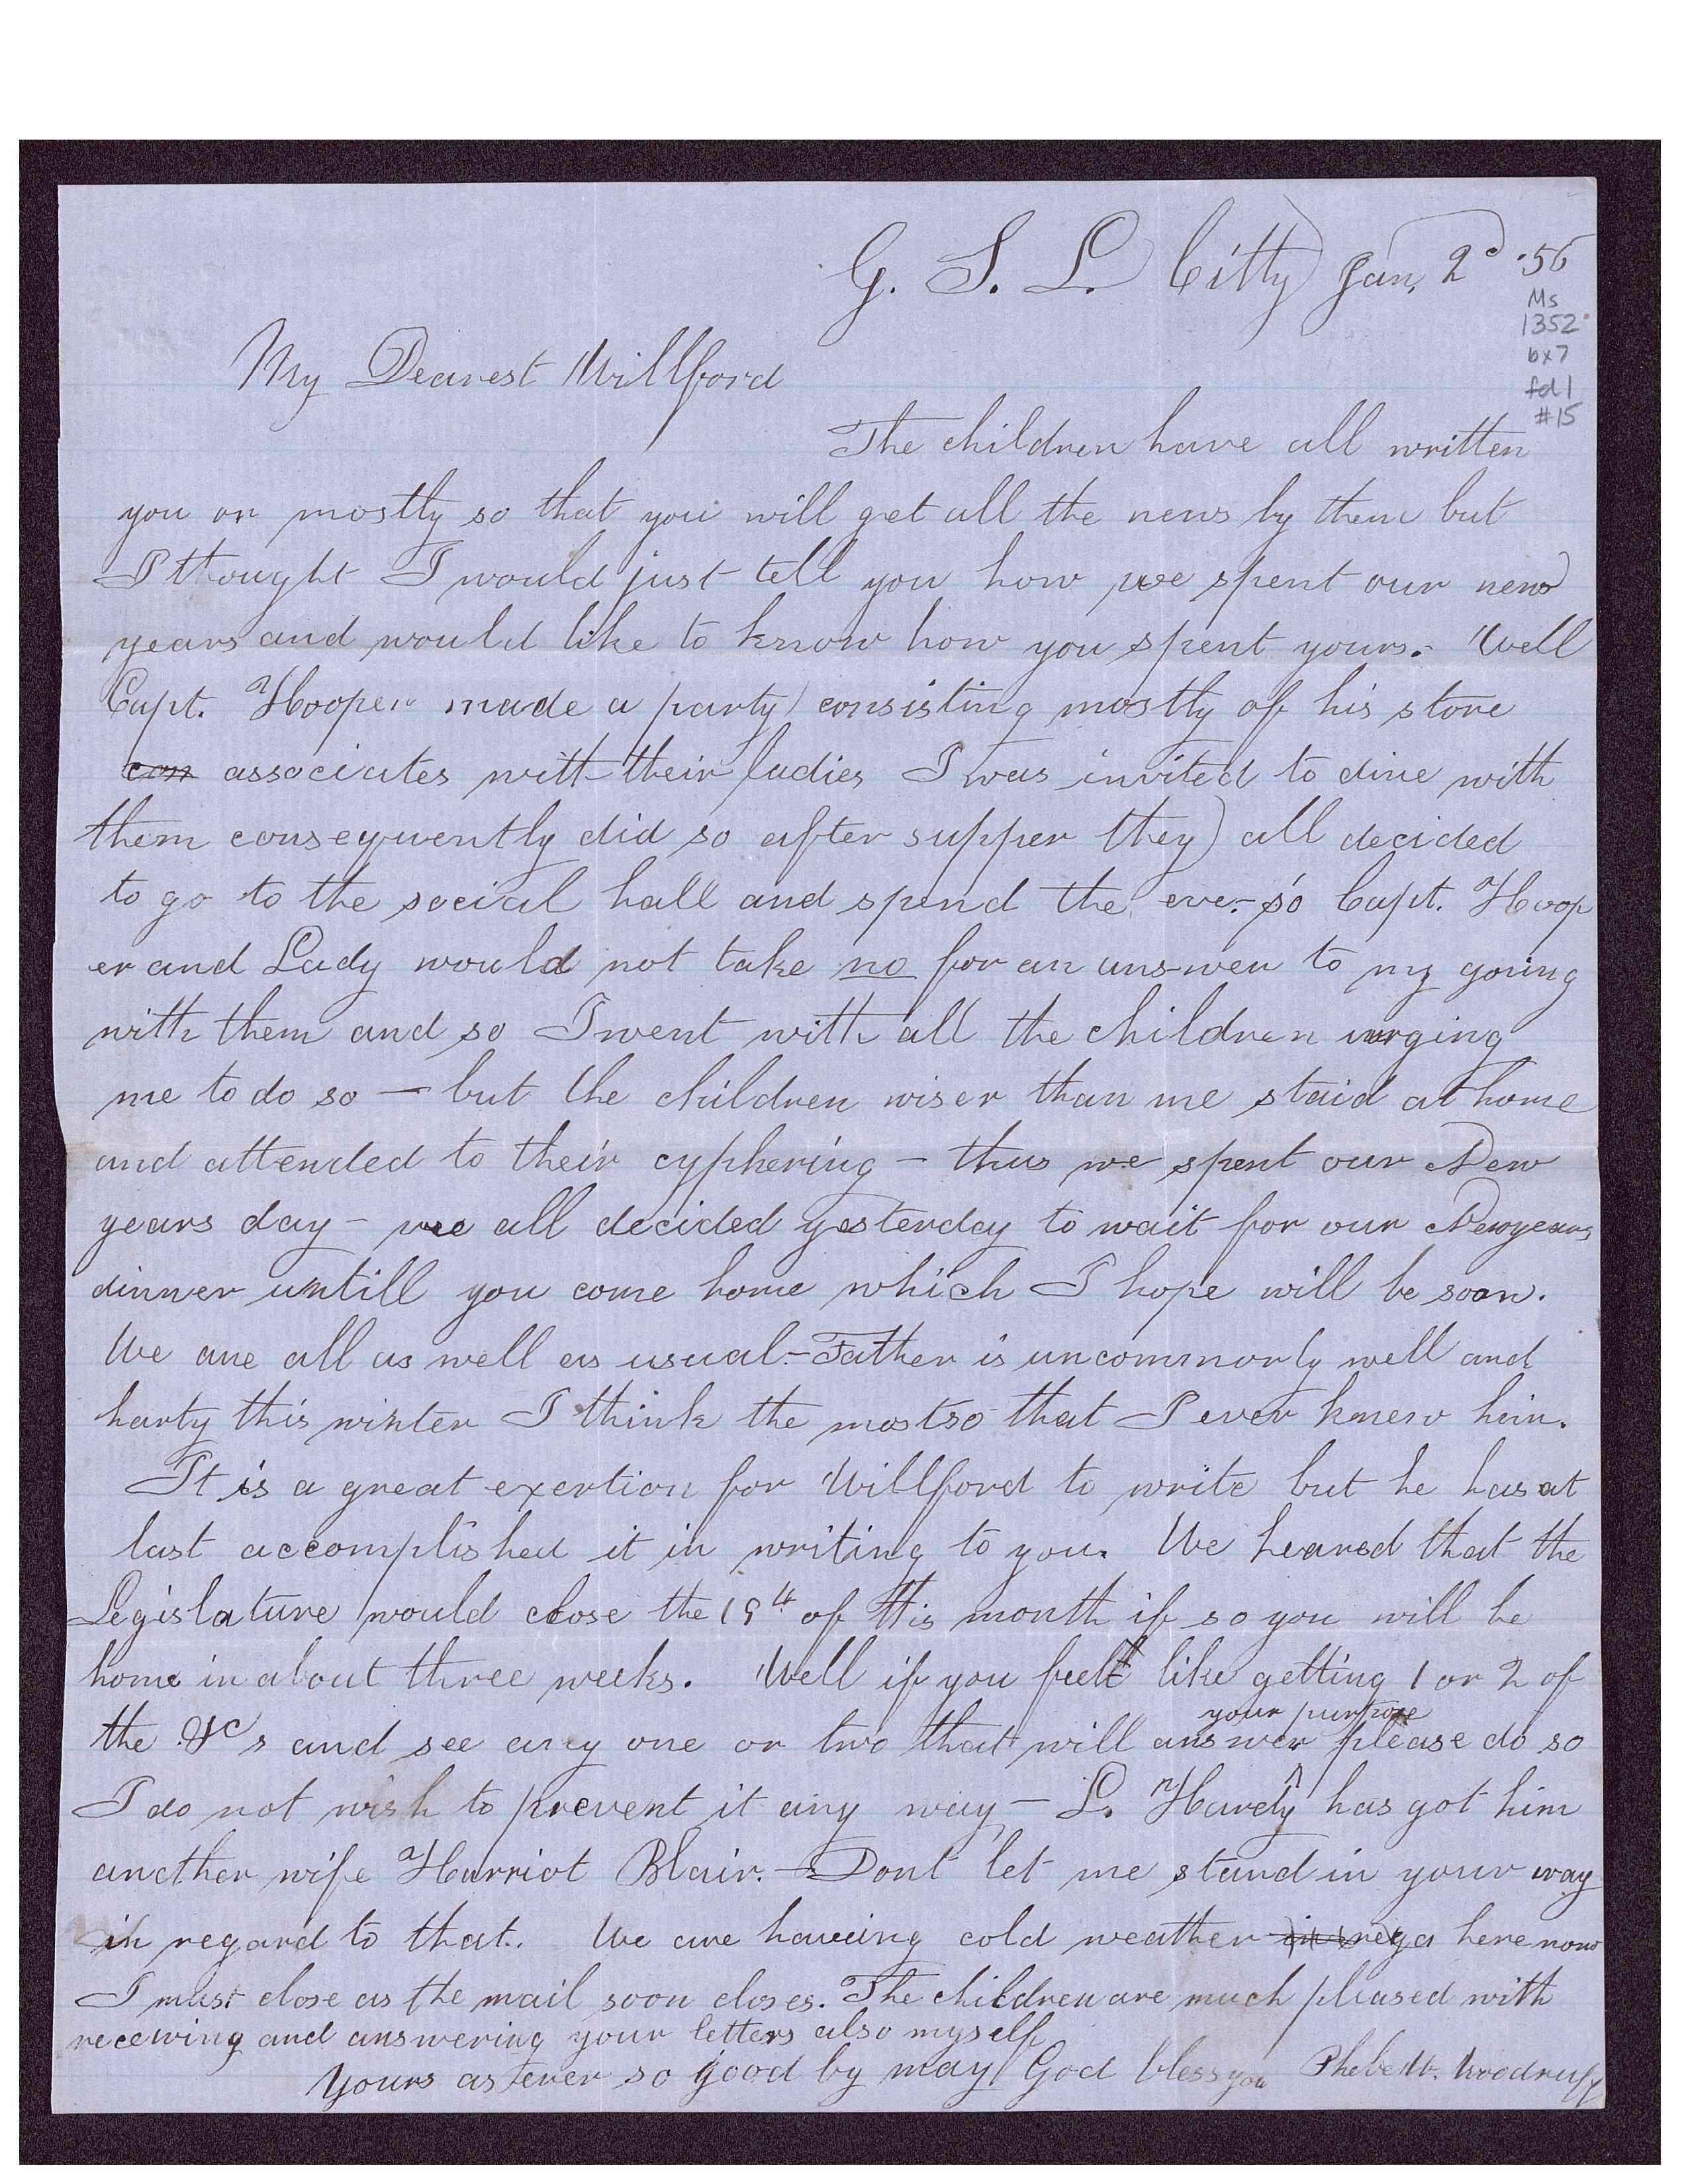 G. S. L. Citty Jan, 2d .56
Ms
1352
bx7
fd 1
#15
My Dearest Willford
The children have all written
you or mostly so that you will get all the news by them but
I thought I would just tell you how we spent our new
years and would like to know how you spent yours. Well
Capt. Hooper made a party consisting mostly of his store
con associates witt their ladies I was invited to dine with
them consequently did so after supper they all decided
to go to the social hall and spend the eve. so Capt. Hoop
er and Lady would not take no for an answer to my going
with them and so I went with all the children urging
me to do so — but the children wiser than me staid at home
and attended to their cyphering — thus we spent our New
years day — we all decided yesterday to wait for our Newyears
dinner untill you come home which I hope will be soon.
We are all as well as usual — Father is uncommonly well and
harty this winter I think the mostso that I ever knew him.
It is a great exertion for Willford to write but he has at
last accomplished it in writing to you. We heared that the
Legislature would close the 19th of this month if so you will be
home in about three weeks. Well if you feelt like getting 1 or 2 of
your purpose
the &c s and see any one or two that will answer ^ please do so
I do not wish to prevent it any way — L. Hardy has got him
another wife Harriot Blair. — Dont let me stand in your way
in regard to that. We are haveing cold weather here now
I must close as the mail soon closes. The children are much pleased with
receiving and answering your letters also myself
Yours as ever so good by may God bless you Phebe W. Woodruff